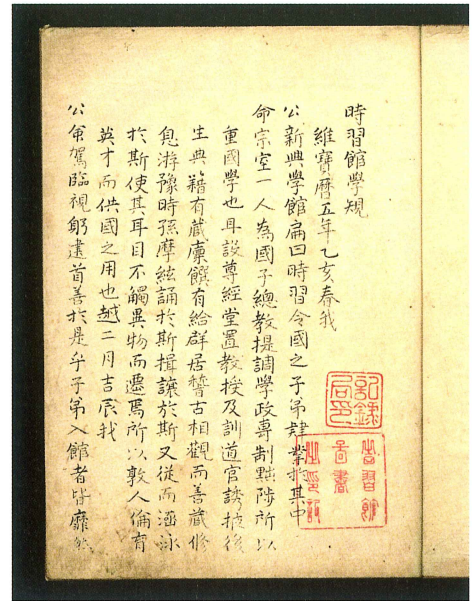 時習館學規
維寶曆五年乙亥春我
公新興學館扁曰時習令國之子弟肄業於其中
命宗室一人為國子總教提調學政專制黜陟所以
重國學也且設尊經堂置教授及訓道官誘掖後
生典籍有藏廩饌有給群居稽古相觀而善藏修
息游豫時孫摩絃誦於斯揖讓於斯又從而涵泳
於斯使其耳目不觸異物而遷焉所以敦人倫育
英才而供國之用也越二月吉辰我
公命駕臨視躬建首善於是乎子弟入館者皆靡然
記錄
局印
時習館
圖書